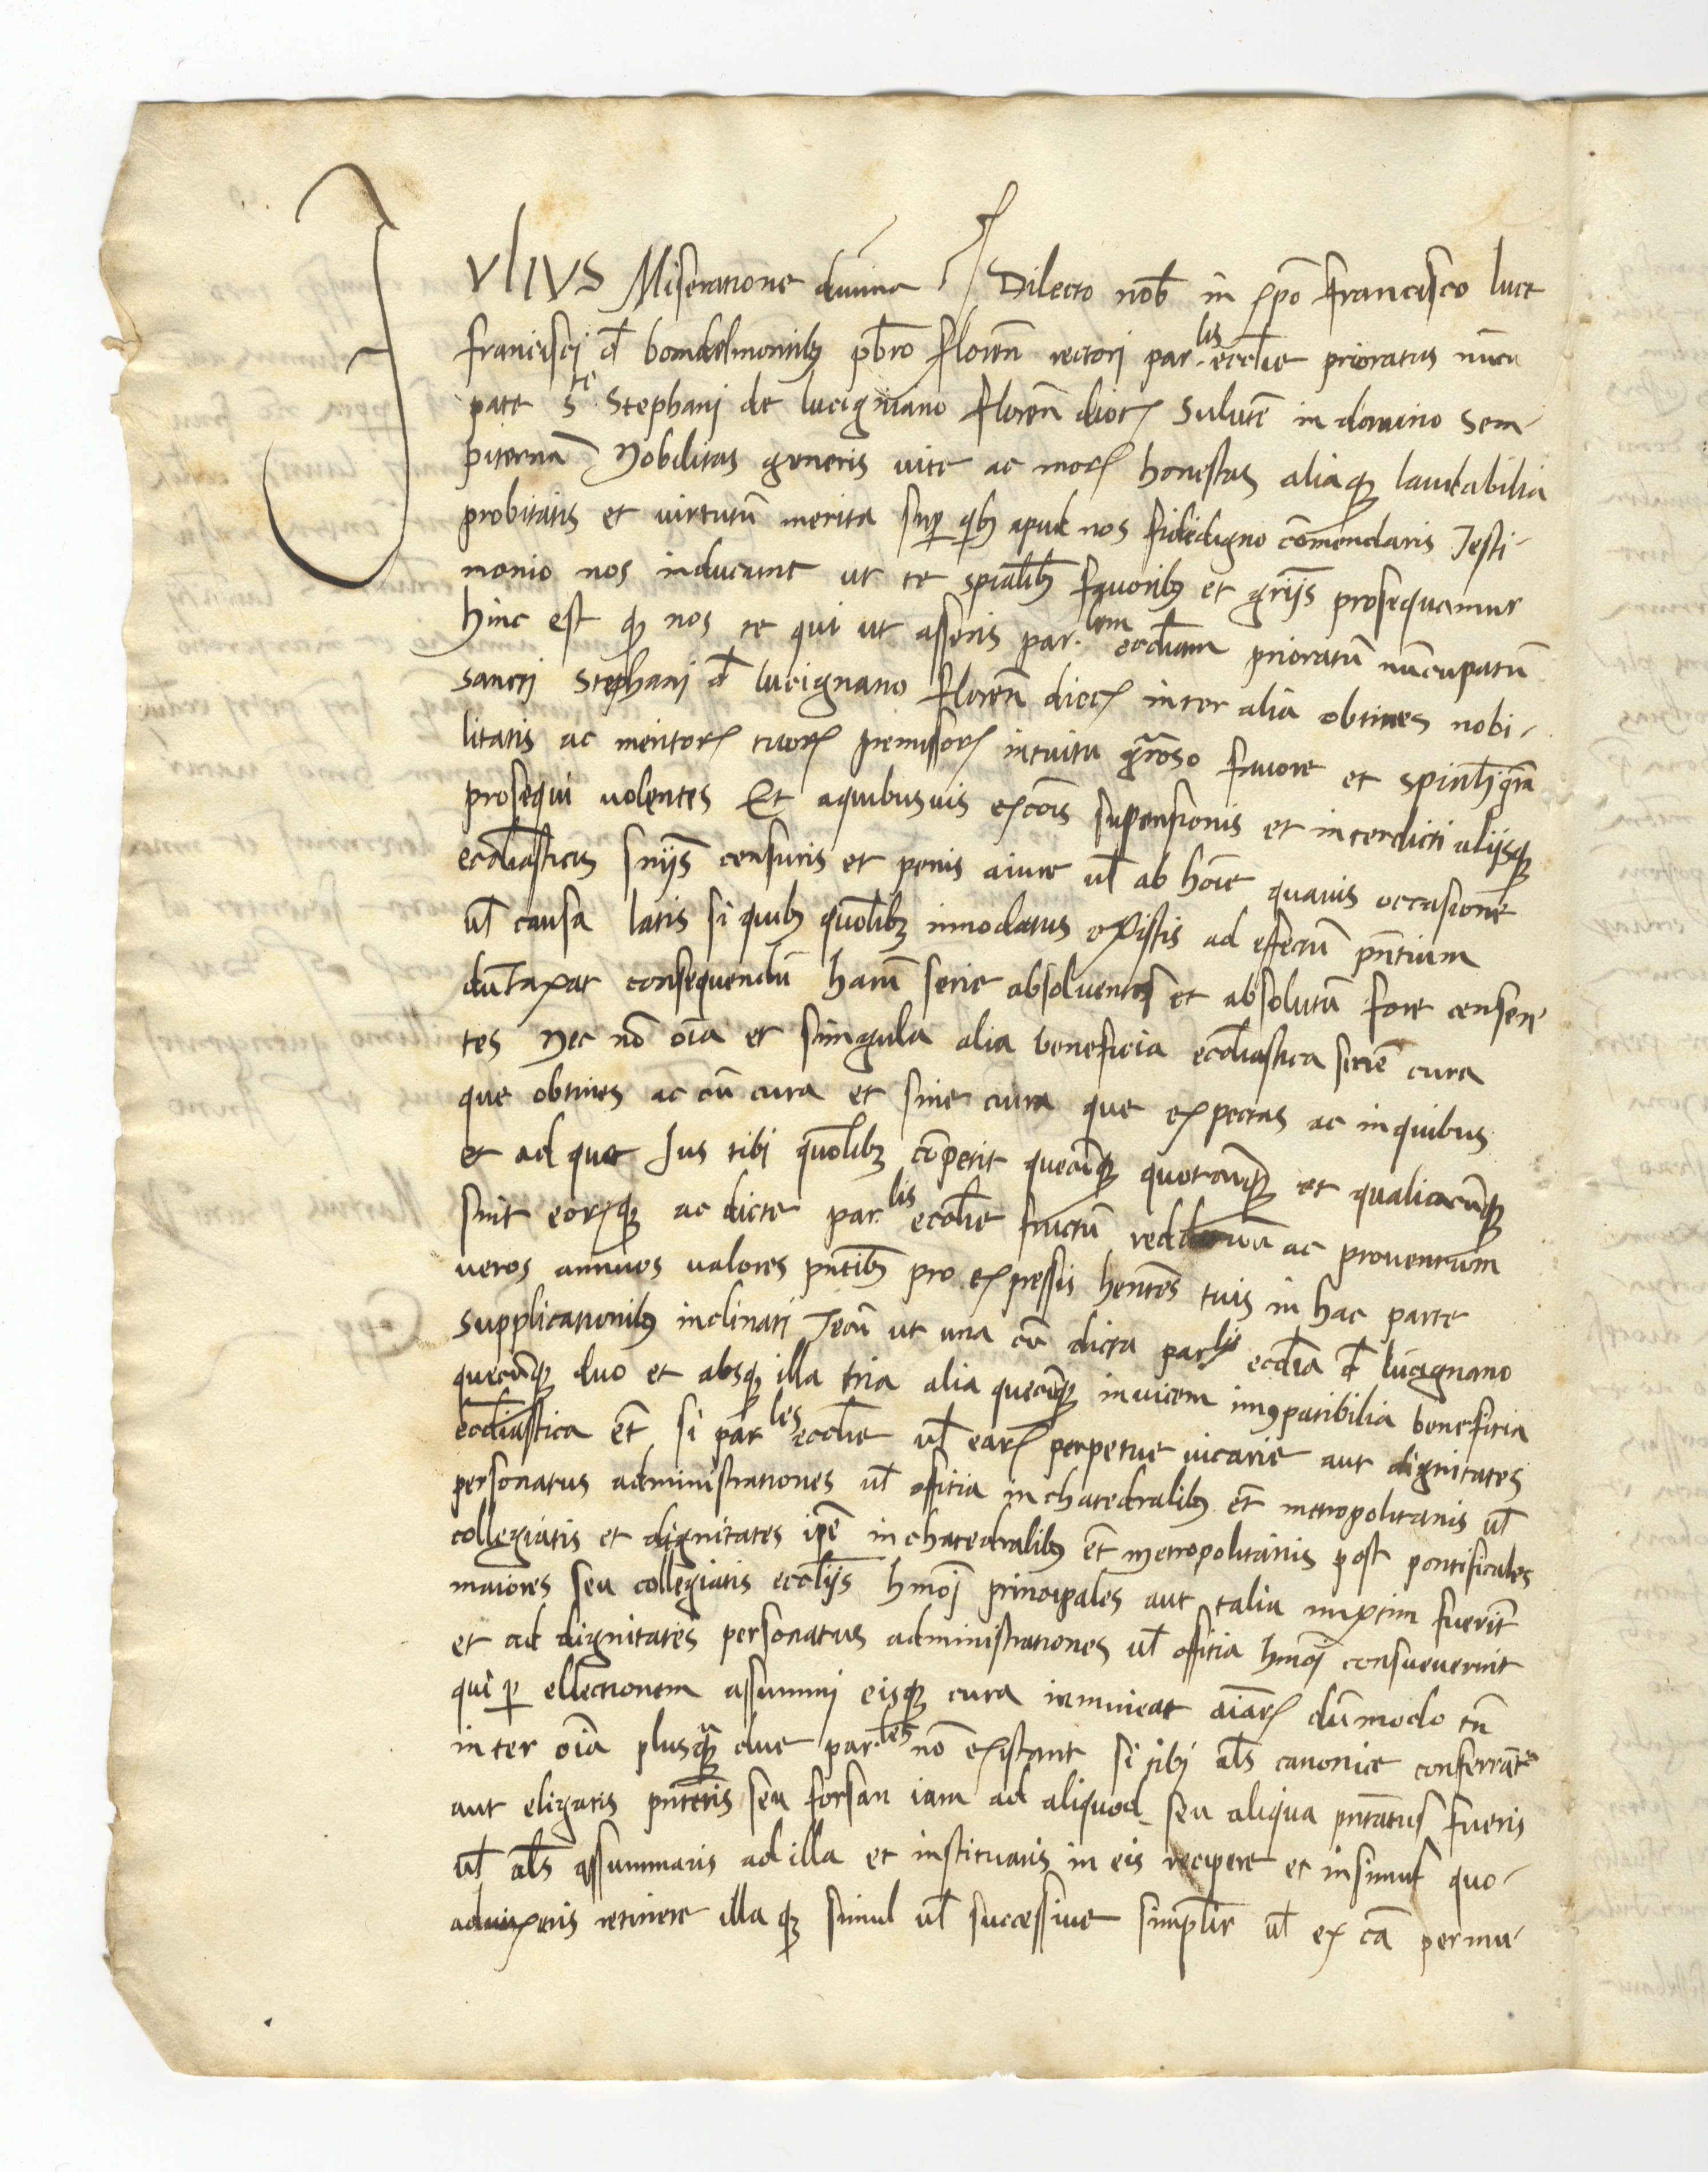 IVlIVS Miseratione diuina &c Dilecto nob̄ in xp̄o Francisco luce
francisci đ bondelmontibꝰ pb̄ro floreñ rectori par.lis eccl̄ie prioratus nūcu
pate S.te Stephani de lucigniano floreñ dioc̃ Salutē in domino Sem-
piternā Nobilitas generis uite ac moꝝ honestas aliaqꝫ laudabilia
probitatis et virtutū merita sup̱ qbꝰ apud nos fidedigno cōmendaris Testi-
monio nos inducunt ut te spial̄ibꝰ fauoribꝰ et gr̄ijs prosequamur
hinc est qꝫ nos te qui ut asseris par.lem eccl̄iam prioratū nūcupatū
sancti Stephani đ lucignano floreñ dioc̃ inter alia obtines nobi-
litatis ac meritoꝝ tuoꝝ premissoꝝ intuitu gr̄oso fauore et spiāli gr̄a
prosequi uolentes Et aquibusuis excōis suspensionis et interdicti alijsqꝫ
eccl̄iasticis sn̄ijs censuris et penis aiure ul̄ ab hoīe quauis occasione
ul̄ causa latis si quibꝰ quōlibꝫ innodatus existis ad effectū pn̄tium
dūtaxat consequendū harū serie absoluentes et absolutū fore censen-
tes Nec nō oīa et singula alia beneficia eccl̄iastica sine cura
que obtines ac cū cura et sine cura que expectas ac inquibus
et ad que Ius tibi quōlibꝫ cōpetit quecūqꝫ quotcūqꝫ et qualiacūqꝫ
sint eoꝝqꝫ ac dicte par.lis eccl̄ie fructū reddituū ac prouentuum
ueros annuos ualores pn̄tibꝰ pro expressis hentēs tuis in hac parte
supplicationibꝰ inclinati Tecū ut una cū dicta par.lis eccl̄ia đ lucignano
quecūqꝫ duo et absqꝫ illa tria alia quecūqꝫ inuicem inꝯpatibilia beneficia
eccl̄iastica et̄ si par.les eccl̄ie ul̄ eaꝝ perpetue uicarie aut dignitates
personatus administrationes ul̄ offitia inchatedralibꝰ et̄ metropolitanis ul̄
collegiatis et dignitates ip̄e inchatedralibꝰ et̄ metropolitanis post pontificales
maiores seu collegiatis eccl̄ijs hm̄oj principales aut talia mixtim fuerīt
et ad dignitates personatus administrationes ul̄ offitia hm̄oj consueuerint
qui p̱ ellectionem assummj eisqꝫ cura inmineat aīaꝝ dūmodo tn̄
inter oīa plusqꝫ due par.les nō existant si tibj al̄s canonice conferrāt.r
aut eligaris pn̄teris seu forsan iam ad aliquod seu aliqua pn̄tatus fueris
ul̄ al̄s assummaris ad illa et instituaris in eis recipere et insimul quo-
aduixeris retinere illa qꝫ simul ul̄ successiue simpl̄r ul̄ ex cā permu-